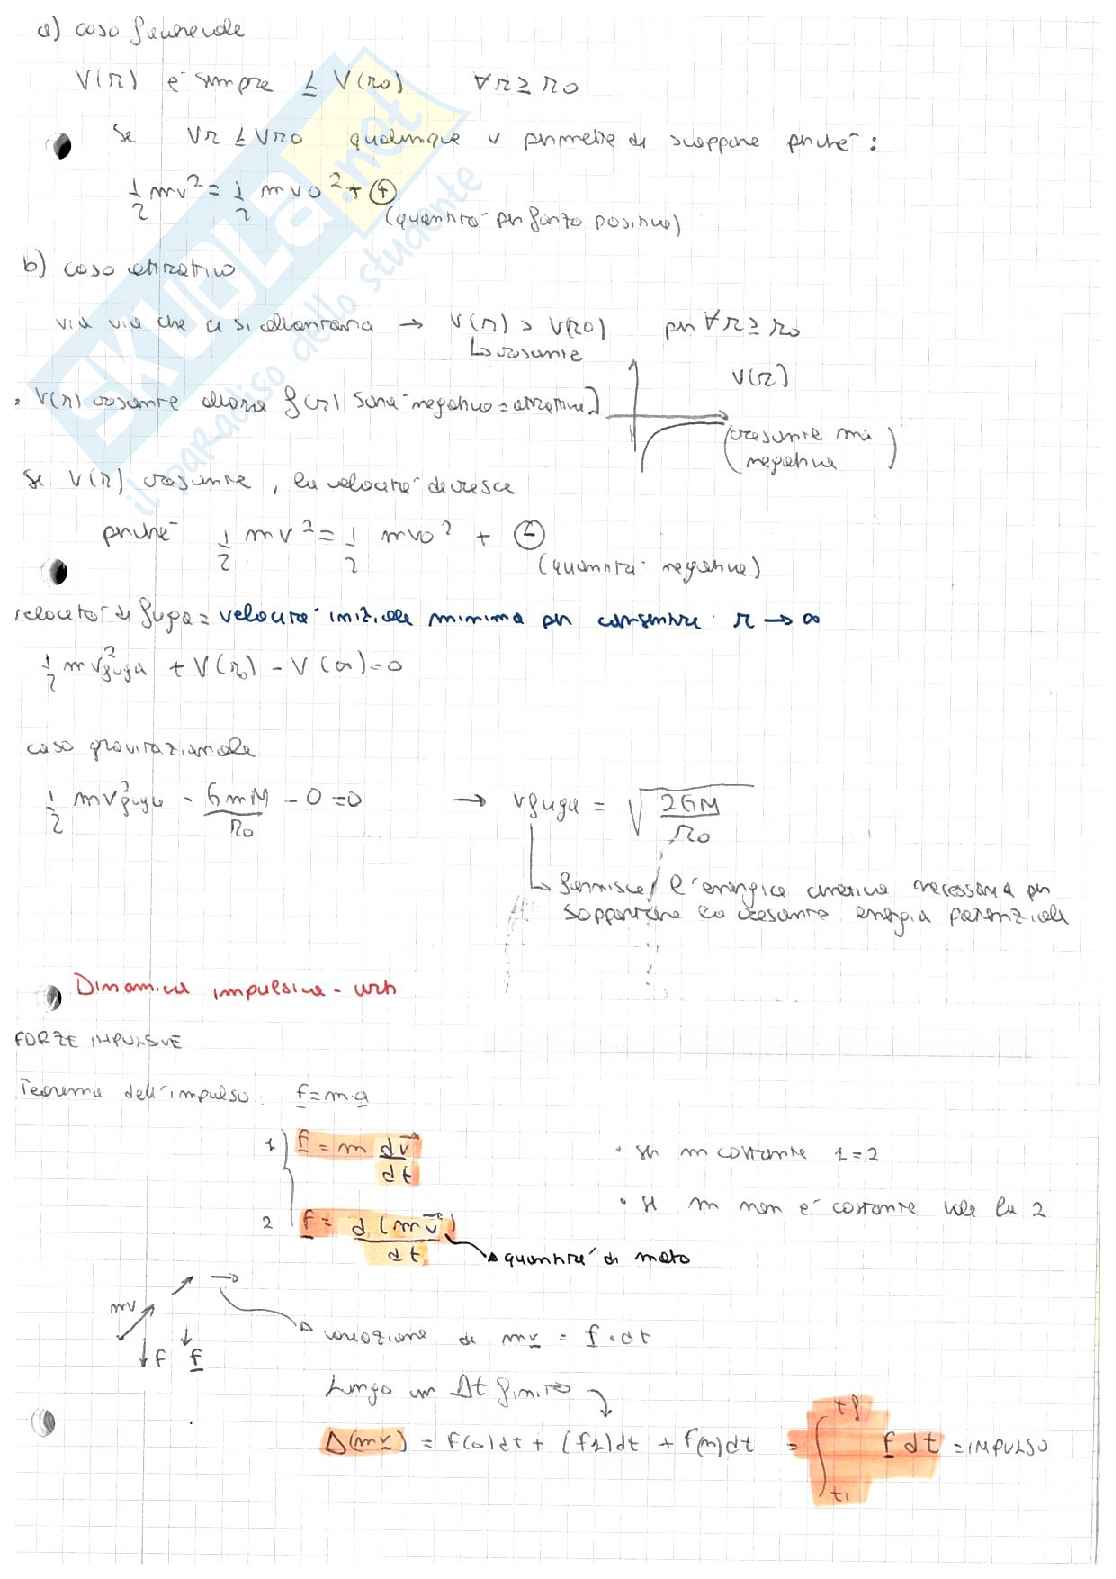 a) caso
V(r) è sempre ≤ V(r0) ∀r ≥ r0
Se Vr ≤ Vr0 qualunque v permette di scappare perché:
1/2 mv² = 1/2 mv0² + ⊕
(quantità per forza positiva)
b) caso attrattivo
via via che ci si allontana → V(r) > V(r0) per ∀r ≥ r0
↳ crescente
V(r) crescente allora f(r) sarà negativo = attrattiva]
V(r)
(crescente ma negativa)
Se V(r) crescente, la velocità decresce
perché 1/2 mv² = 1/2 mv0² + ⊖
(quantità negativa)
velocità di fuga = velocità iniziale minima per consentire r → ∞
1/2 mv²fuga + V(r0) - V(∞) = 0
caso gravitazionale
1/2 mv²fuga - GmM/r0 - 0 = 0 → vfuga = √(2GM/r0)
↳ fornisce l'energica cinetica necessaria per
sopportare la crescente energia potenziale
Dinamica impulsiva - urti
FORZE IMPULSIVE
Teorema dell'impulso: f = m·a
1 f = m dv/dt • se m costante 1=2
2 f = d(mv)/dt • se m non è costante vale la 2
quantità di moto
mv
F f
variazione di mv = f·dt
Lungo un Δt finito
Δ(mv) = f(0)dt + (f1)dt + f(n)dt = ∫ti tf f dt = IMPULSO
SKUOLA.net
il paradiso dello studente